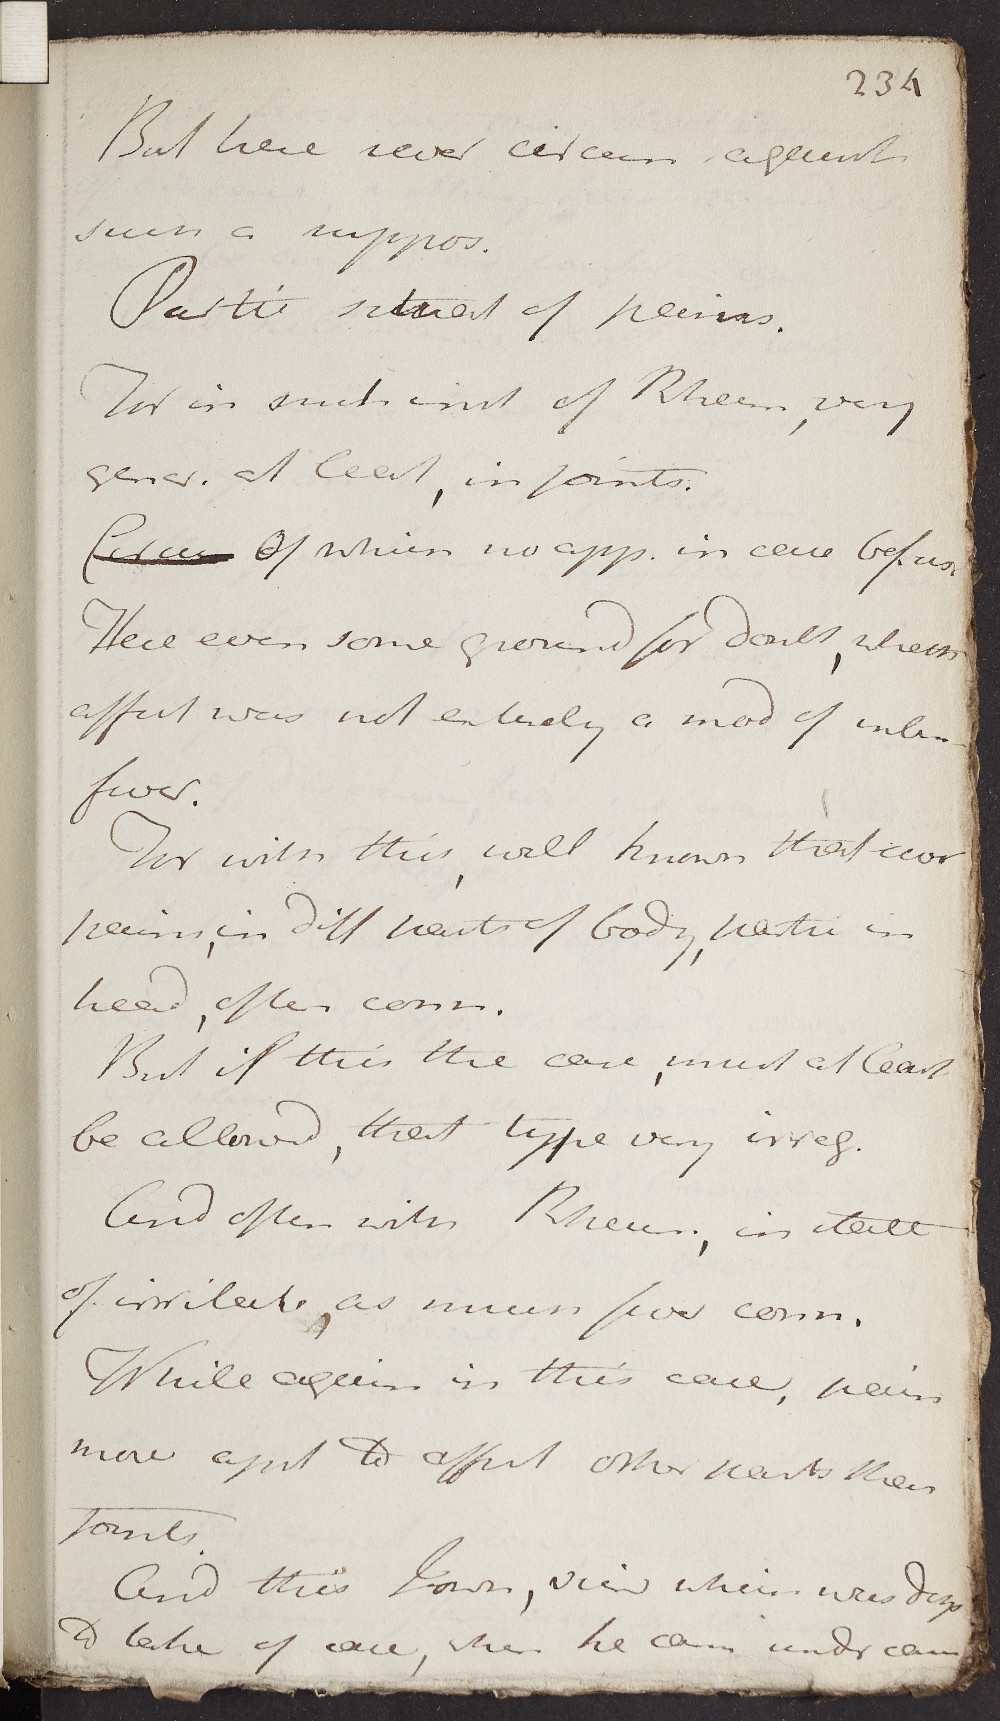 234
But here sever circum against
such a suppos.
Partic situat of pains.
For in such inst of Rheum, very
gener. at least, in joints.
Circum Of which no app. in case bef. us.
Here even some ground for doubt, wheth
affect was not entirely a mod of inter-
fever.
For with this, well known that acor
pains, in diff parts of body, partic in
head, often conn.
But if this the case, must at least
be allowed, that type very irreg.
And often with Rheum., in state
of irritat, as much fever conn.
While again in this case, pain
more apt to affect other parts than
joints.
And this I own, view which was disp
to take of case, when he cam under cam